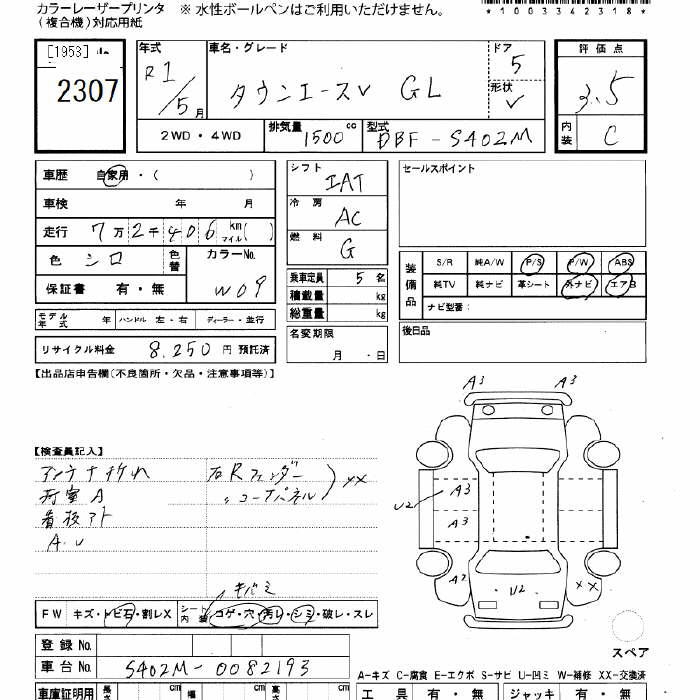 カラーレーザープリンタ ※ 水性ボールペンはご利用いただけません。
(複合機)対応用紙
*1003342318*
[1953]
2307
年式 R1/5月
車名・グレード タウンエースV GL
ドア 5
形状 V
評価点 3.5
内装 C
2WD・4WD
排気量 1500cc
型式 DBF-S402M
車歴 自家用・( )
車検 年 月
走行 7万2千406 km マイル( )
色 シロ 色替 カラーNo. W09
保証書 有・無
モデル年式 年 ハンドル 左・右 ディーラー・並行
リサイクル料金 8,250 円 預託済
シフト IAT
冷房 AC
燃料 G
乗車定員 5 名
積載量 kg
総重量 kg
名変期限
月 ・ 日
セールスポイント
装備品
S/R 純A/W P/S P/W ABS
純TV 純ナビ 革シート 外ナビ エアB
ナビ型番:
後日品
【出品店申告欄(不良箇所・欠品・注意事項等)】
【検査員記入】
アンテナ折れ
荷室A
看板アト
A.U
右Rフェンダー
〃コーナーパネル
XX
A3 A3
U2 A3
A3
A2 U2 XX
スペア
キバミ
FW キズ・トビ石・割レX
シート内装 コゲ・穴・汚レ・シミ・破レ・スレ
登録 No.
車台 No. S402M-0082193
A-キズ C-腐食 E-エクボ S-サビ U-凹ミ W-補修 XX-交換済
車庫証明用 長さ cm 幅 cm 高さ cm
工具 有・無 ジャッキ 有・無